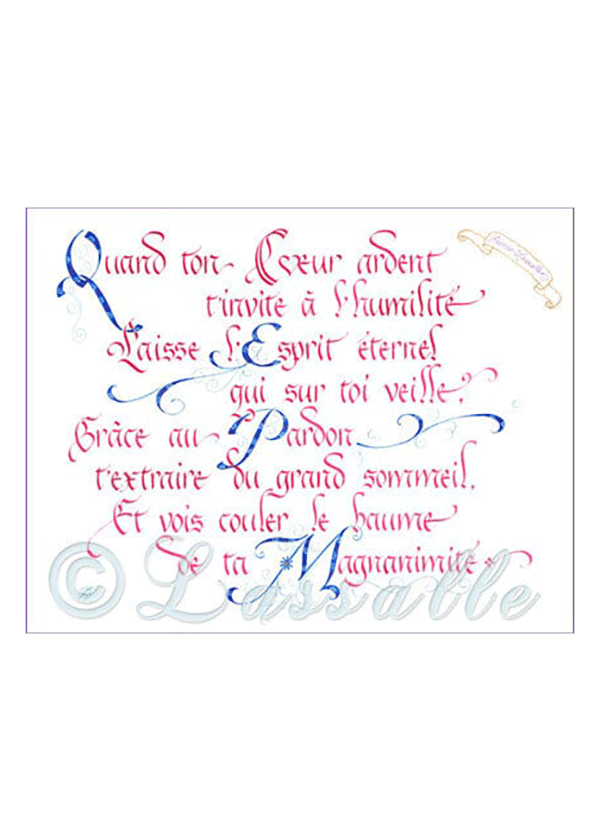 Quand ton Cœur ardent
t'invite à l'humilité
Laisse l'Esprit éternel
qui sur toi veille,
Grâce au Pardon
t'extraire du grand sommeil,
Et vois couler le baume
de ta Magnanimité
Pierre Lassalle
© Lassalle